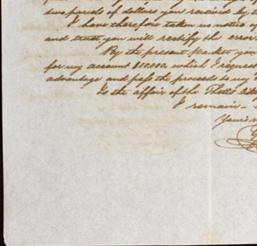 two parcels of dollars you remain by
I have therefore taken no notice of
and trust you will rectify the error
By the present Packet you
for my account $10,000, which I request
advantage and pass the proceeds to my
In the affair of the
I remain
Yours